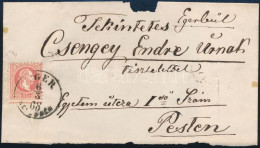 Tekintetes Egerből
Csengey Endre Urnak
tisztelettel
Egyetem utcza 1ső Szám
Pesten
EGER